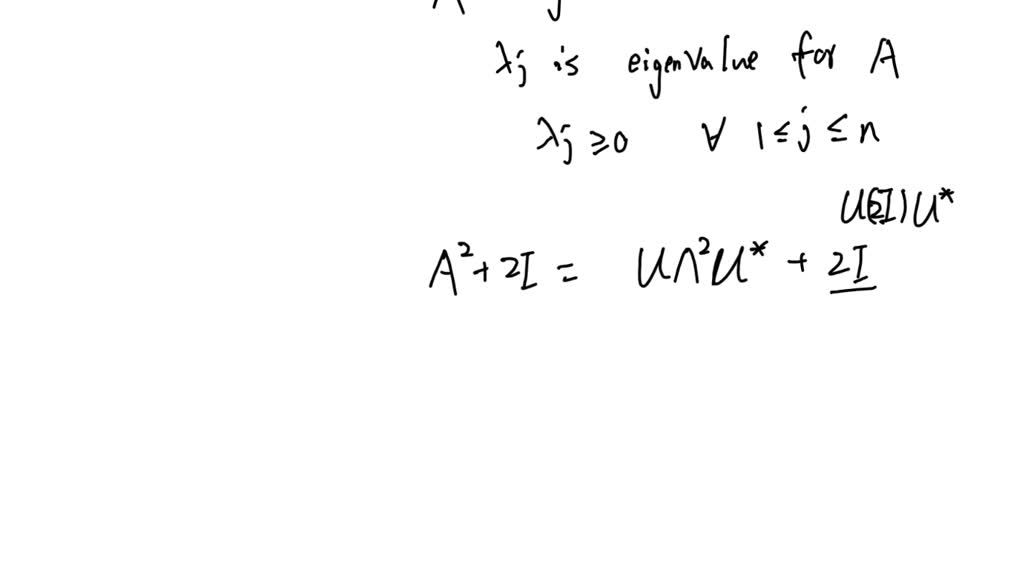 λj is eigenvalue for A
λj ≥ 0 ∀ 1 ≤ j ≤ n
U(2I)U*
A² + 2I = UΛ²U* + 2I